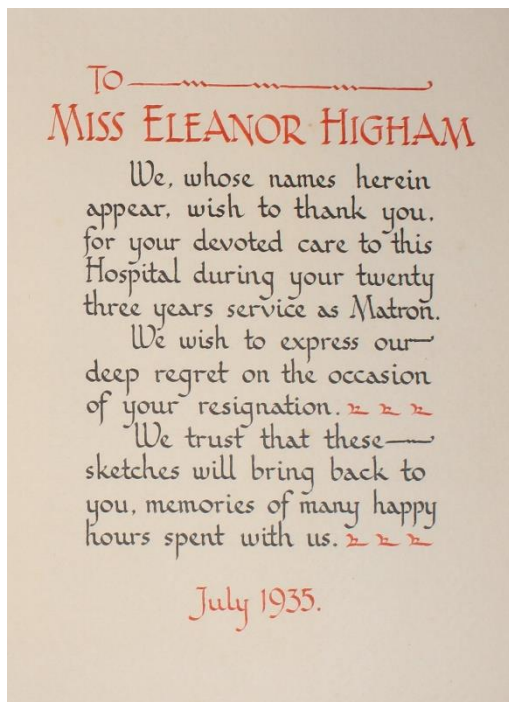 To
Miss Eleanor Higham
We, whose names herein
appear, wish to thank you,
for your devoted care to this
Hospital during your twenty
three years service as Matron.
We wish to express our
deep regret on the occasion
of your resignation.
We trust that these
sketches will bring back to
you, memories of many happy
hours spent with us.
July 1935.